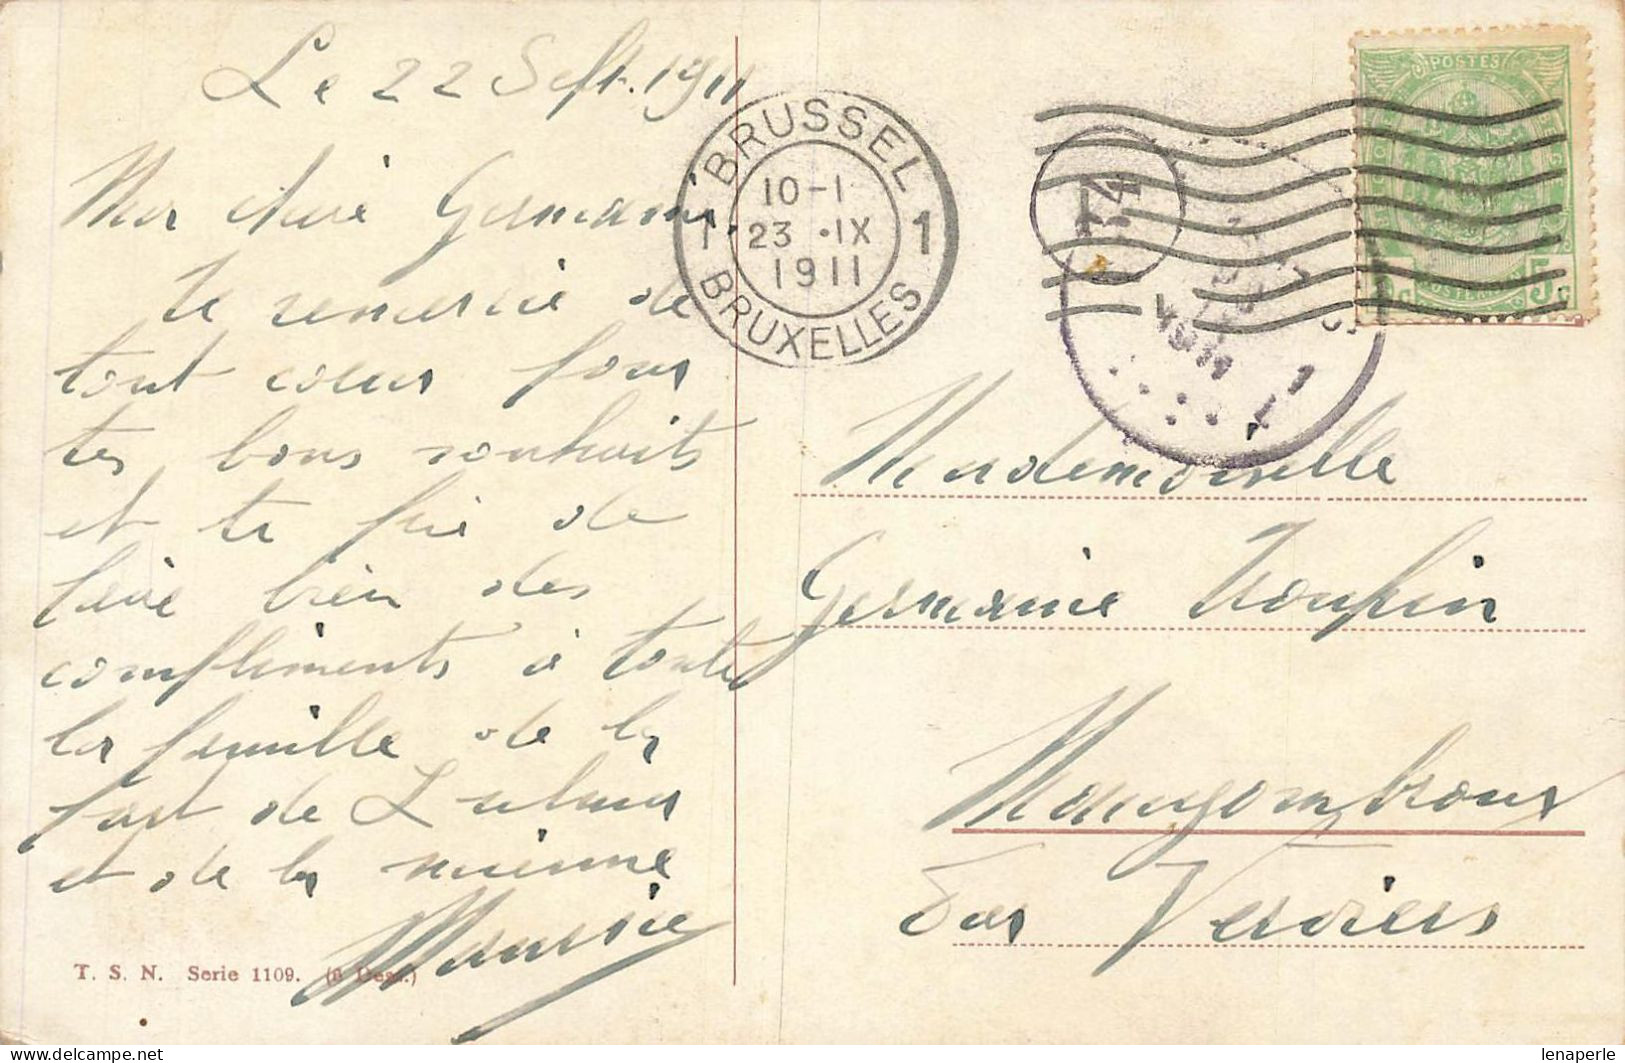 Le 22 Sept. 1911
Ma chère Germaine,
te remercie de
tout coeur pour
tes bons souhaits
et te prie de
faire bien des
compliments à toute
la famille de la
part de
et de la mienne
Maurice
T. S. N. Serie 1109. (6 Dess.)
BRUSSEL
1 1
10-1
23 ·IX
1911
BRUXELLES
74
1911
1
POSTES
POSTERIJEN
5c 5c
Mademoiselle
Germaine Troupin
Mangombroux
Par Verviers
lenaperle
www.delcampe.net